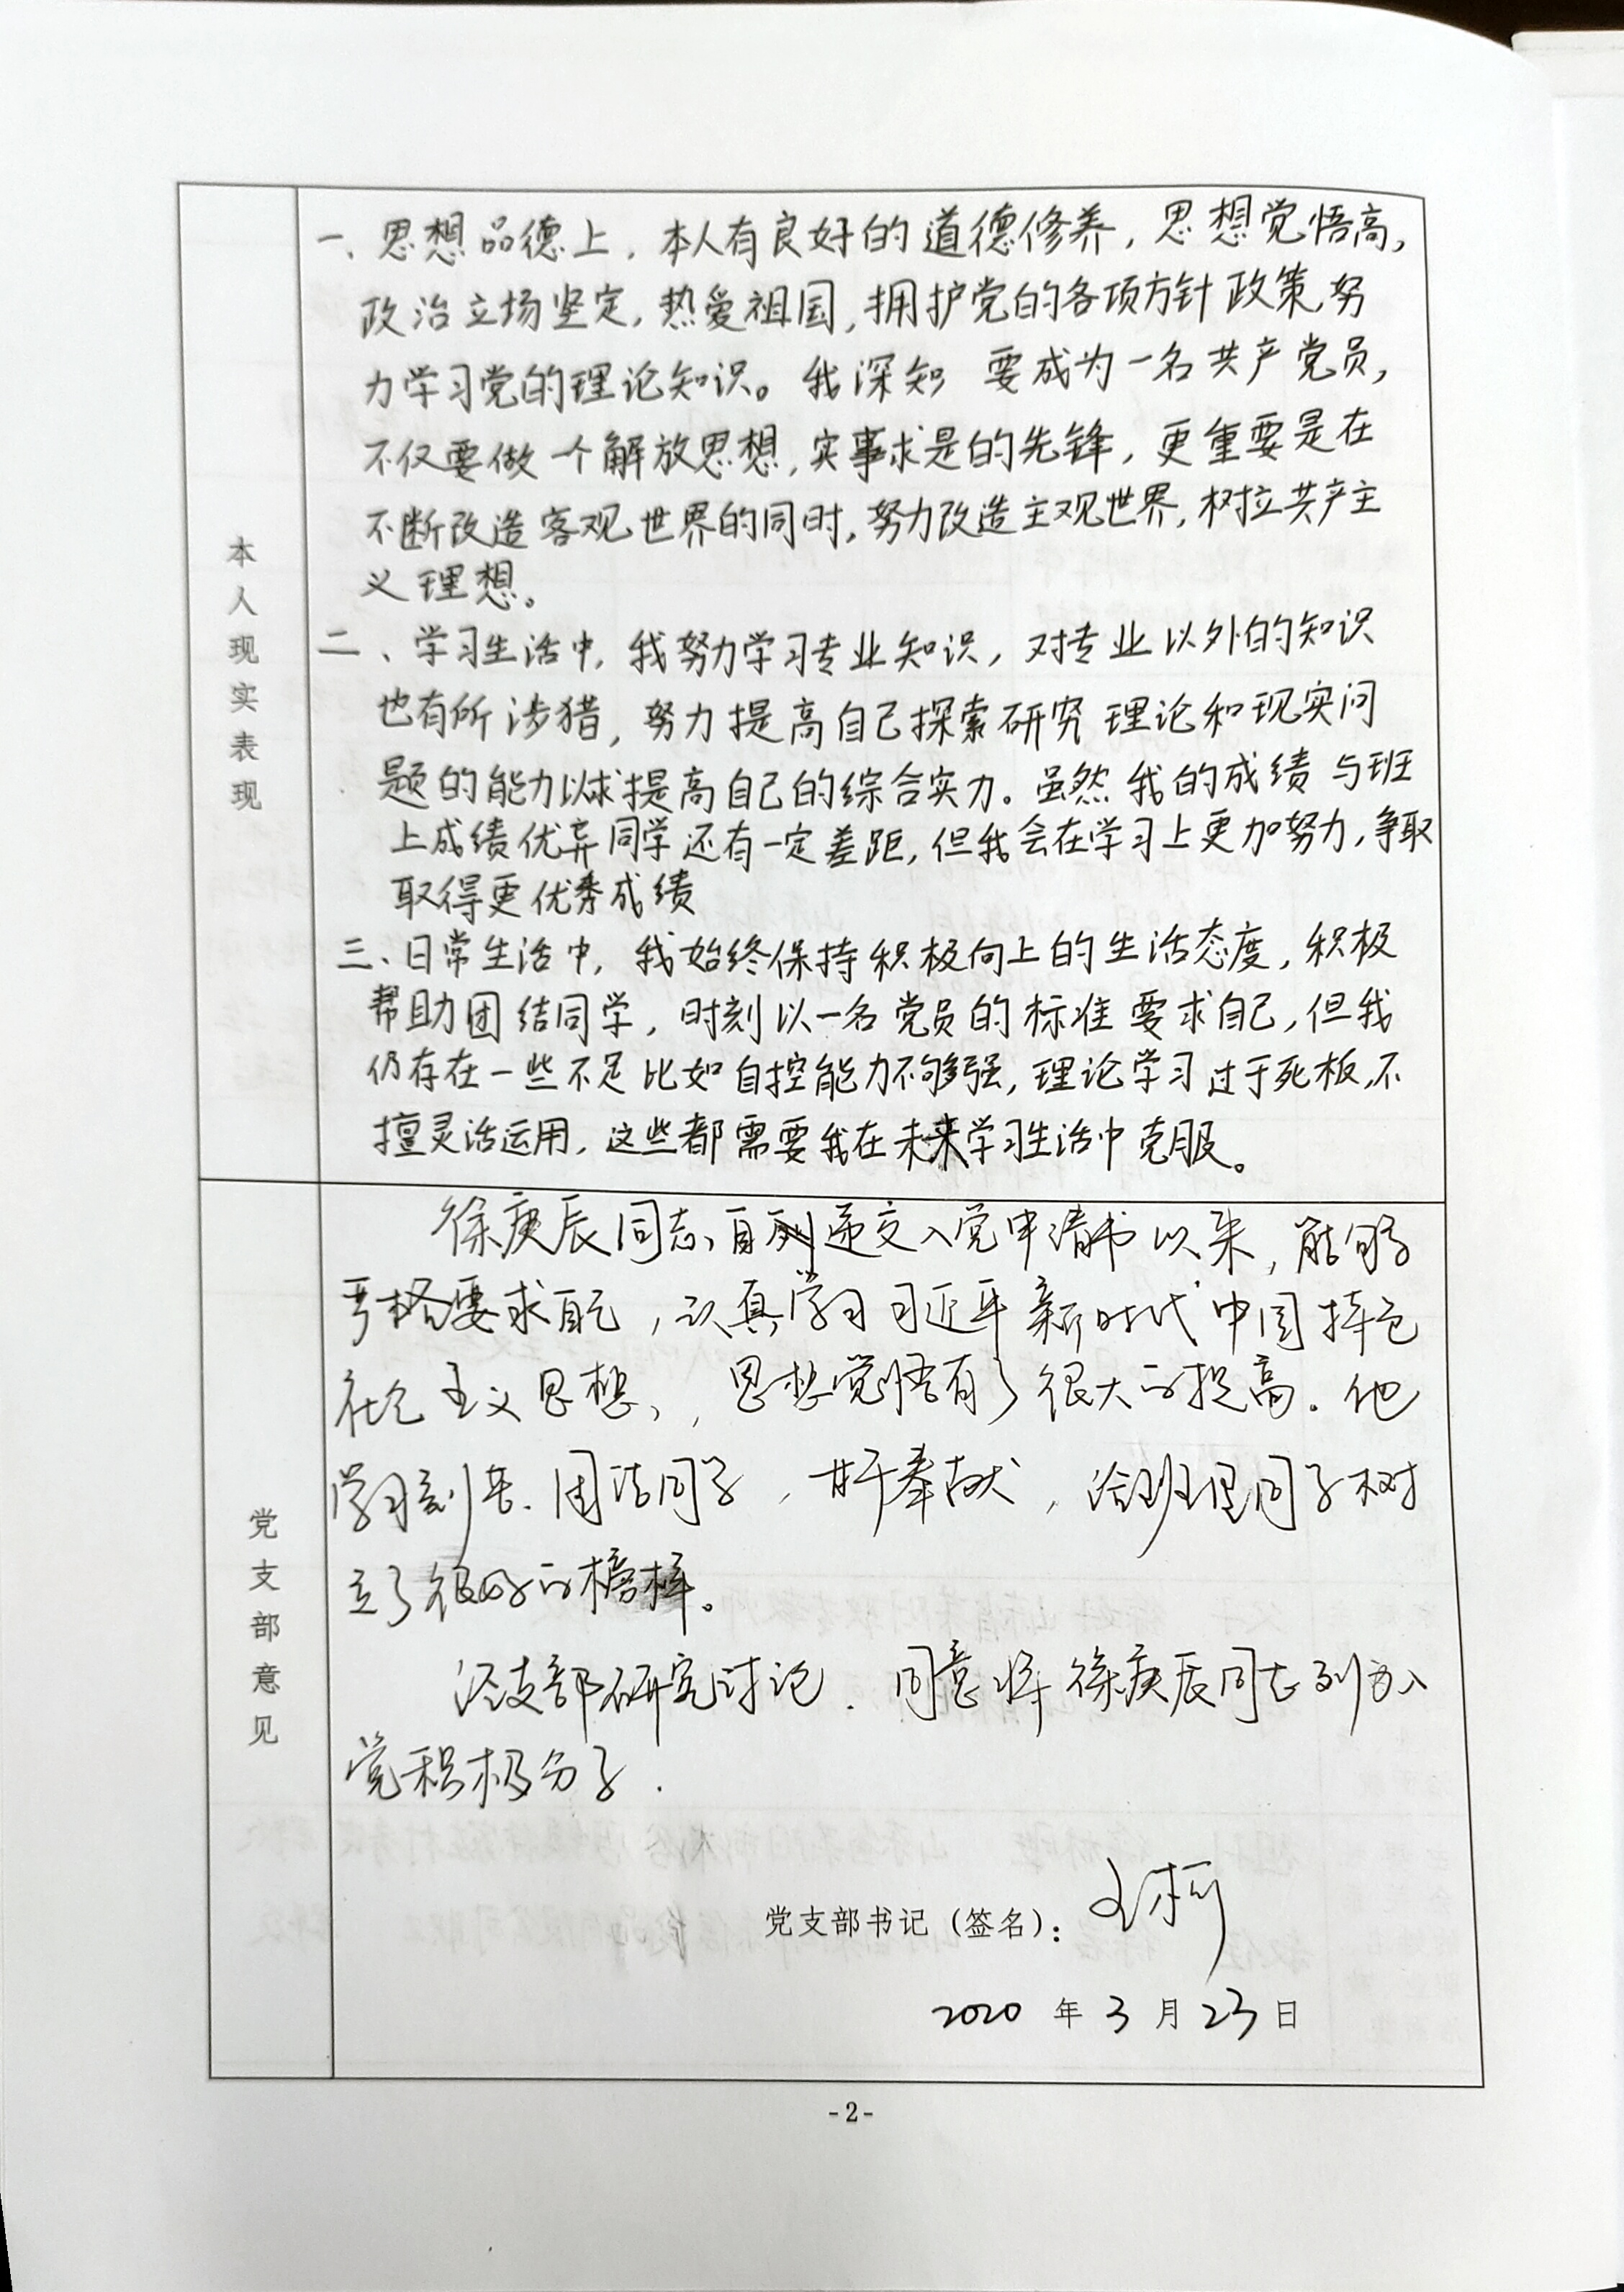 本人现实表现
一、思想品德上，本人有良好的道德修养，思想觉悟高，
政治立场坚定，热爱祖国，拥护党的各项方针政策，努
力学习党的理论知识。我深知 要成为一名共产党员，
不仅要做一个解放思想，实事求是的先锋，更重要是在
不断改造客观世界的同时，努力改造主观世界，树立共产主
义理想。
二、学习生活中，我努力学习专业知识，对专业以外的知识
也有所涉猎，努力提高自己探索研究理论和现实问
题的能力以求提高自己的综合实力。虽然我的成绩与班
上成绩优异同学还有一定差距，但我会在学习上更加努力，争取
取得更优秀成绩
三、日常生活中，我始终保持积极向上的生活态度，积极
帮助团结同学，时刻以一名党员的标准要求自己，但我
仍存在一些不足比如自控能力不够强，理论学习过于死板，不
擅灵活运用，这些都需要我在未来学习生活中克服。
党支部意见
徐庚辰同志自递交入党申请书以来，能够
严格要求自己，认真学习习近平新时代中国特色
社会主义思想，思想觉悟有了很大的提高．他
学习刻苦、团结同学，甘于奉献，给班里同学树
立了很好的榜样。
经支部研究讨论．同意将徐庚辰同志列为入
党积极分子．
党支部书记（签名）：王柯
2020 年 3 月 23 日
-2-